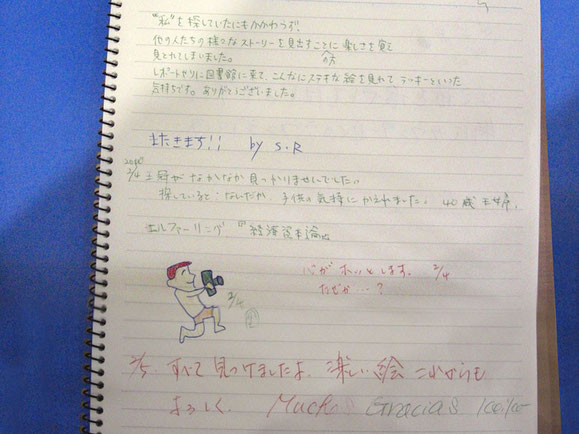 "私"を探していたにもかかわらず!
他の人たちの様々なストーリーを見出すことに楽しさを覚え
の方
見とれてしまいました。
レポートやりに図書館に来て、こんなにステキな絵を見れて ラッキーといった
気持ちです。ありがとうございました。
またきます!! by S.R
2/4 三冠がなかなか見つかりませんでした。
探していると、なんだか、子供の気持にかえれました。 40歳 主婦。
心がホッとします。 2/4
なぜか…?
2/4
2/5. すべて見つけましたよ. 楽しい絵 これからも
よろしく. Much Gracias